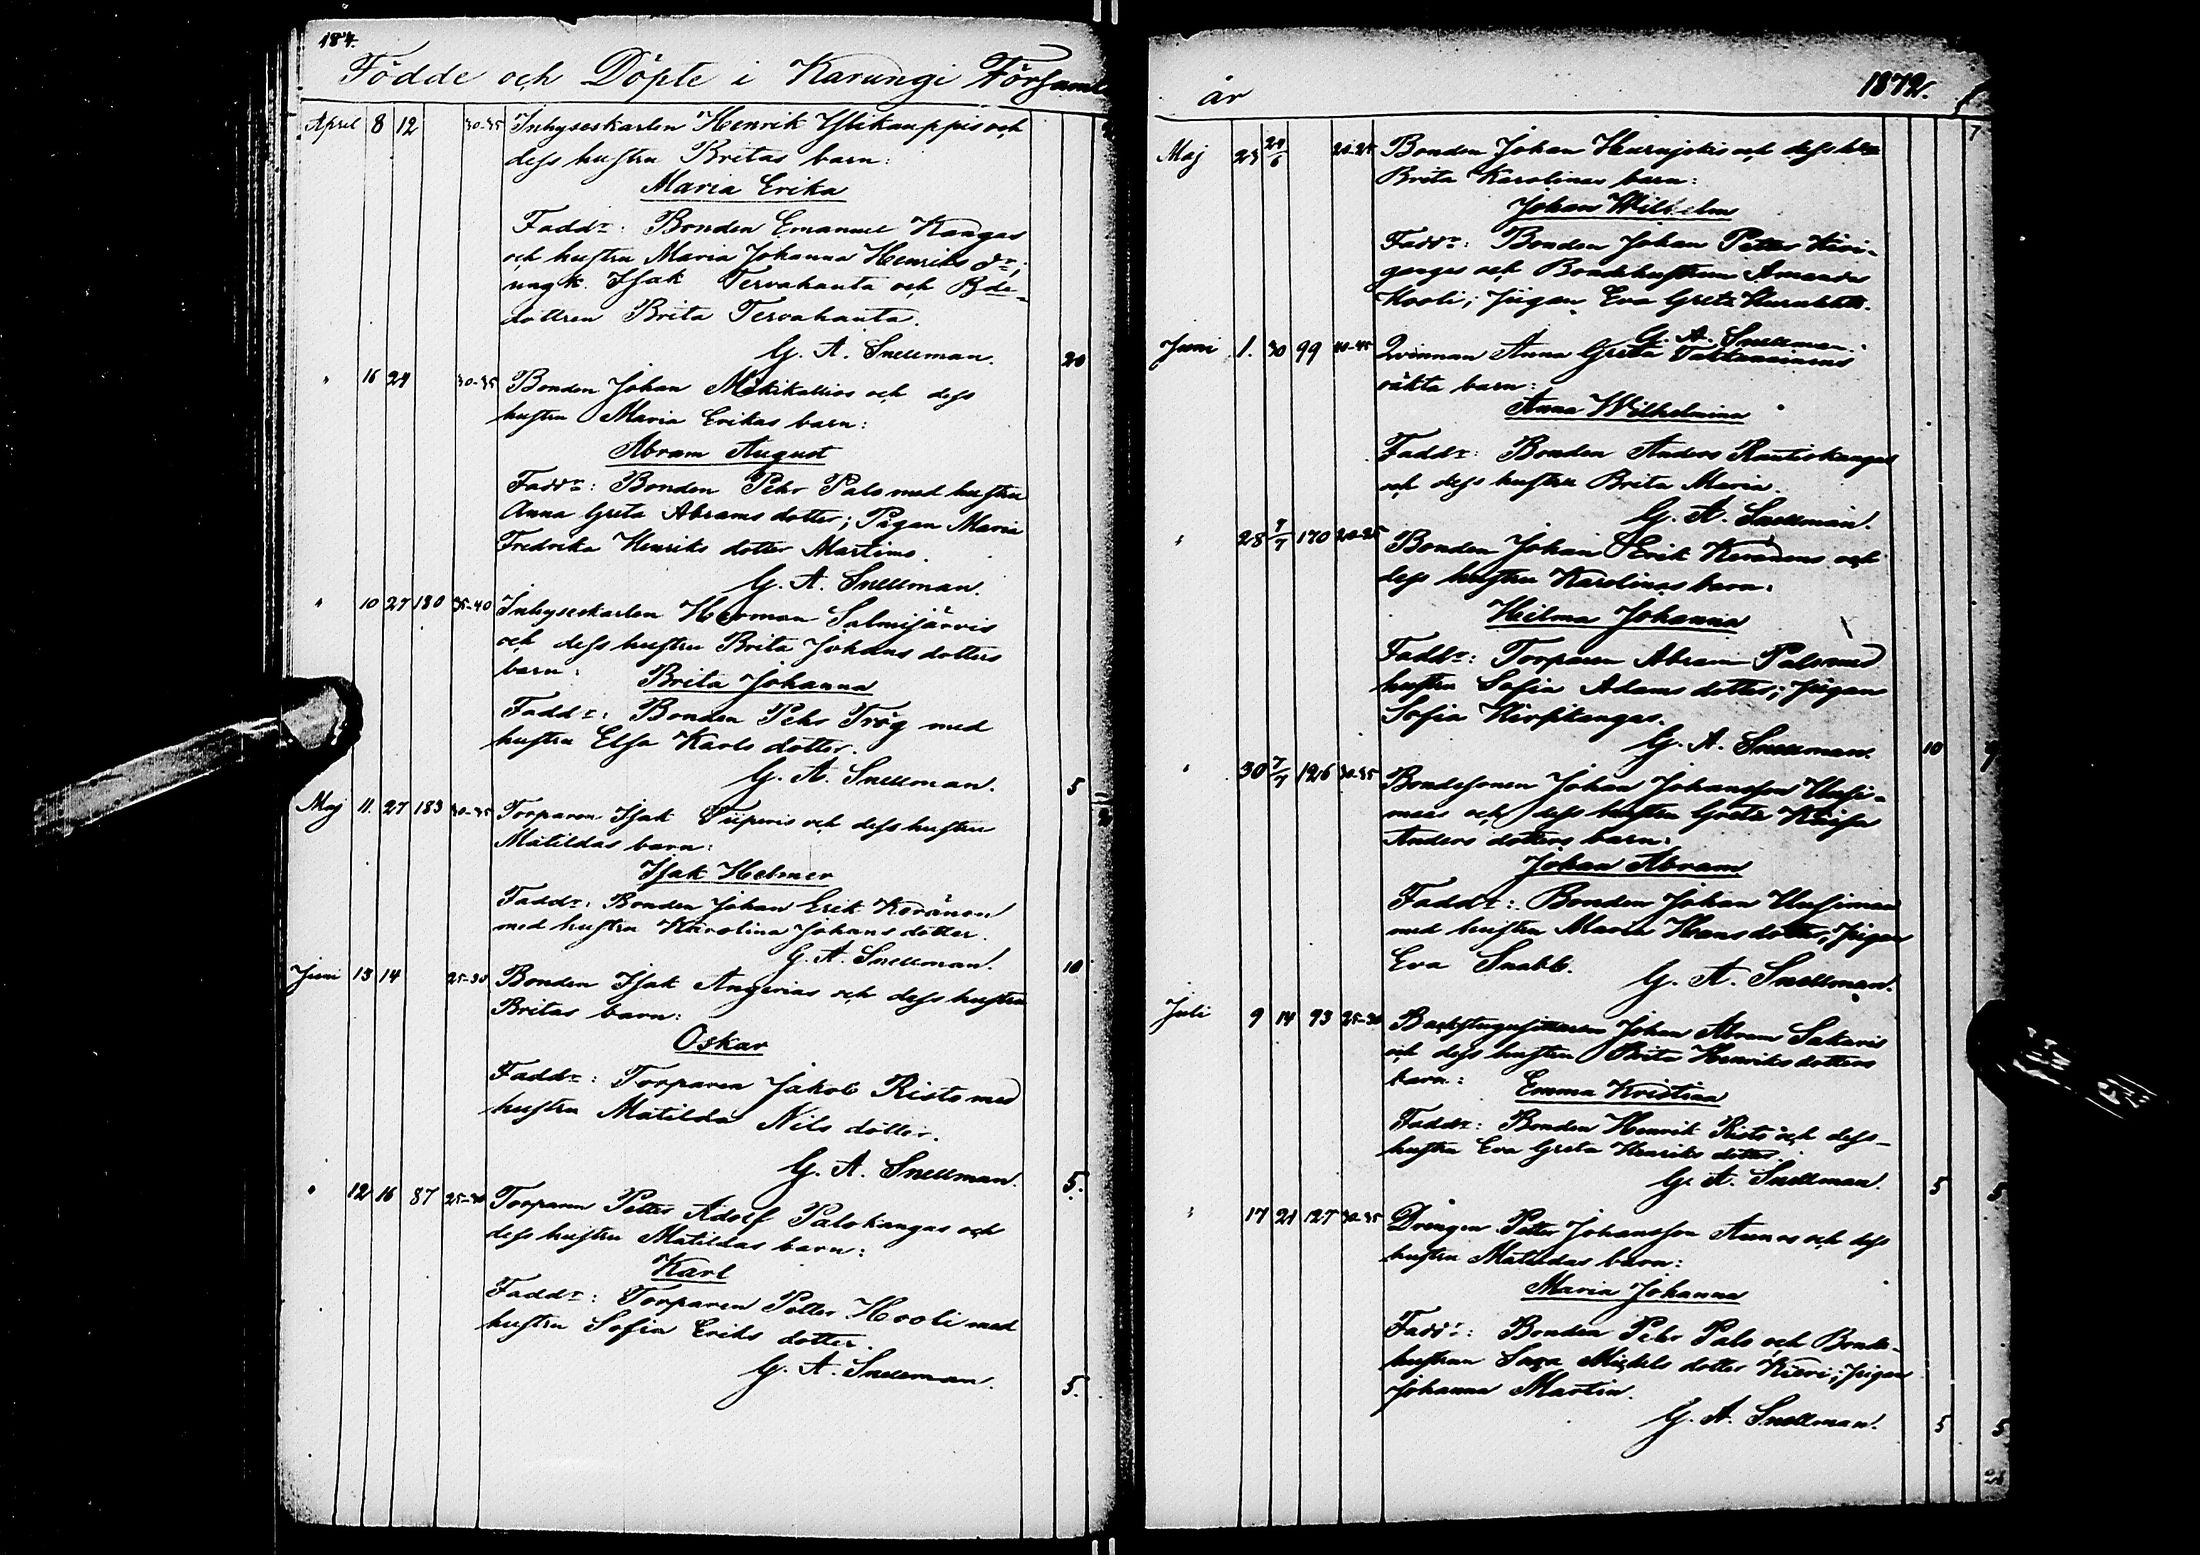 184.
Födde och Döpte i Karungi Församl
April 8 12 30-35 Inhyseskarlen Henrik Ylikauppis och
dess hustru Britas barn:
Maria Erika
Faddr: Bonden Emanuel Kangas
och hustru Maria Johanna Henriks dr;
ungk. Isak Tervahauta och Bde-
dottren Brita Tervahauta.
G. A. Snellman. 20
" 16 24 30-35 Bonden Johan Mäkikallios och dess
hustru Maria Erikas barn:
Abram August
Faddr: Bonden Pehr Palo med hustru
Anna Greta Abrams dotter; Pigan Maria
Fredrika Henriks dotter Martimo.
G. A. Snellman.
" 10 27 180 35-40 Inhyseskarlen Herman Salmijärvis
och dess hustru Brita Johans dotters
barn: Brita Johanna
Faddr: Bonden Pehr Trög med
hustru Elsa Karls dotter.
G. A. Snellman. 5
Maj 11. 27 183 30-35 Torparen Isak Siiperis och dess hustru
Matildas barn:
Isak Helmer
Faddr: Bonden Johan Erik Keränen
med hustru Karolina Johans dotter.
G. A. Snellman. 10
Juni 13 14 25-30 Bonden Isak Angerias och dess hustru
Britas barn:
Oskar
Faddr: Torparen Jakob Risto med
hustru Matilda Nils dotter.
G. A. Snellman. 5.
" 12 16 87 25-30 Torparen Petter Adolf Palokangas och
dess hustru Matildas barn:
Karl
Faddr: Torparen Petter Hooli med
hustru Sofia Eriks dotter.
G. A. Snellman. 5.
år 1872.
Maj 23 24/6 Bonden Johan och dess
Brita Karolinas barn:
Johan Wilhelm
Faddr: Bonden Johan Petter
och Bondehustrun Amanda
Hooli; Pigan Eva Greta
G. A. Snellman.
Juni 1. 30 99 40-45 Qvinnan Anna Greta
oäkta barn:
Anna Wilhelmina
Faddr: Bonden Anders Rautiokangas
och dess hustru Brita Maria.
G. A. Snellman.
" 28 7/7 170 20-25 Bonden Johan Erik Keränens och
dess hustru Karolinas barn:
Hilma Johanna
Faddr: Torparen Abram Palo med
hustru Sofia Adams dotter; Pigan
Sofia
G. A. Snellman. 10
" 30 7/7 126 30-35 Bondesonen Johan Johansson Uusi-
maas och dess hustru Greta Kaisa
Anders dotters barn:
Johan Abram
Faddr: Bonden Johan Uusimaa
med hustru Maria Hans dotter; Pigan
Eva Snabb. G. A. Snellman.
Juli 9 14 93 25-30 Backstugusittaren Johan Abram Sakaris
och dess hustru Brita Henriks dotters
barn: Emma Kristina
Faddr: Bonden Henrik Risto och dess
hustru Eva Greta Henriks dotter.
G. A. Snellman. 5 5
" 17 21 127 30-35 Drengen Petter Johansson Aunos och dess
hustru Matildas barn:
Maria Johanna
Faddr: Bonden Pehr Palo och Bonde-
hustrun Sara Mickels dotter Kieri; Pigan
Johanna Martin.
G. A. Snellman. 5 5